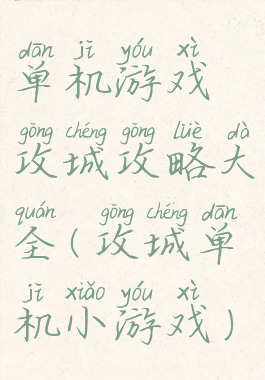 dān jī yóu xì
单机游戏
gōng chéng gōng lüè dà
攻城攻略大
quán gōng chéng dān
全(攻城单
jī xiǎo yóu xì
机小游戏)